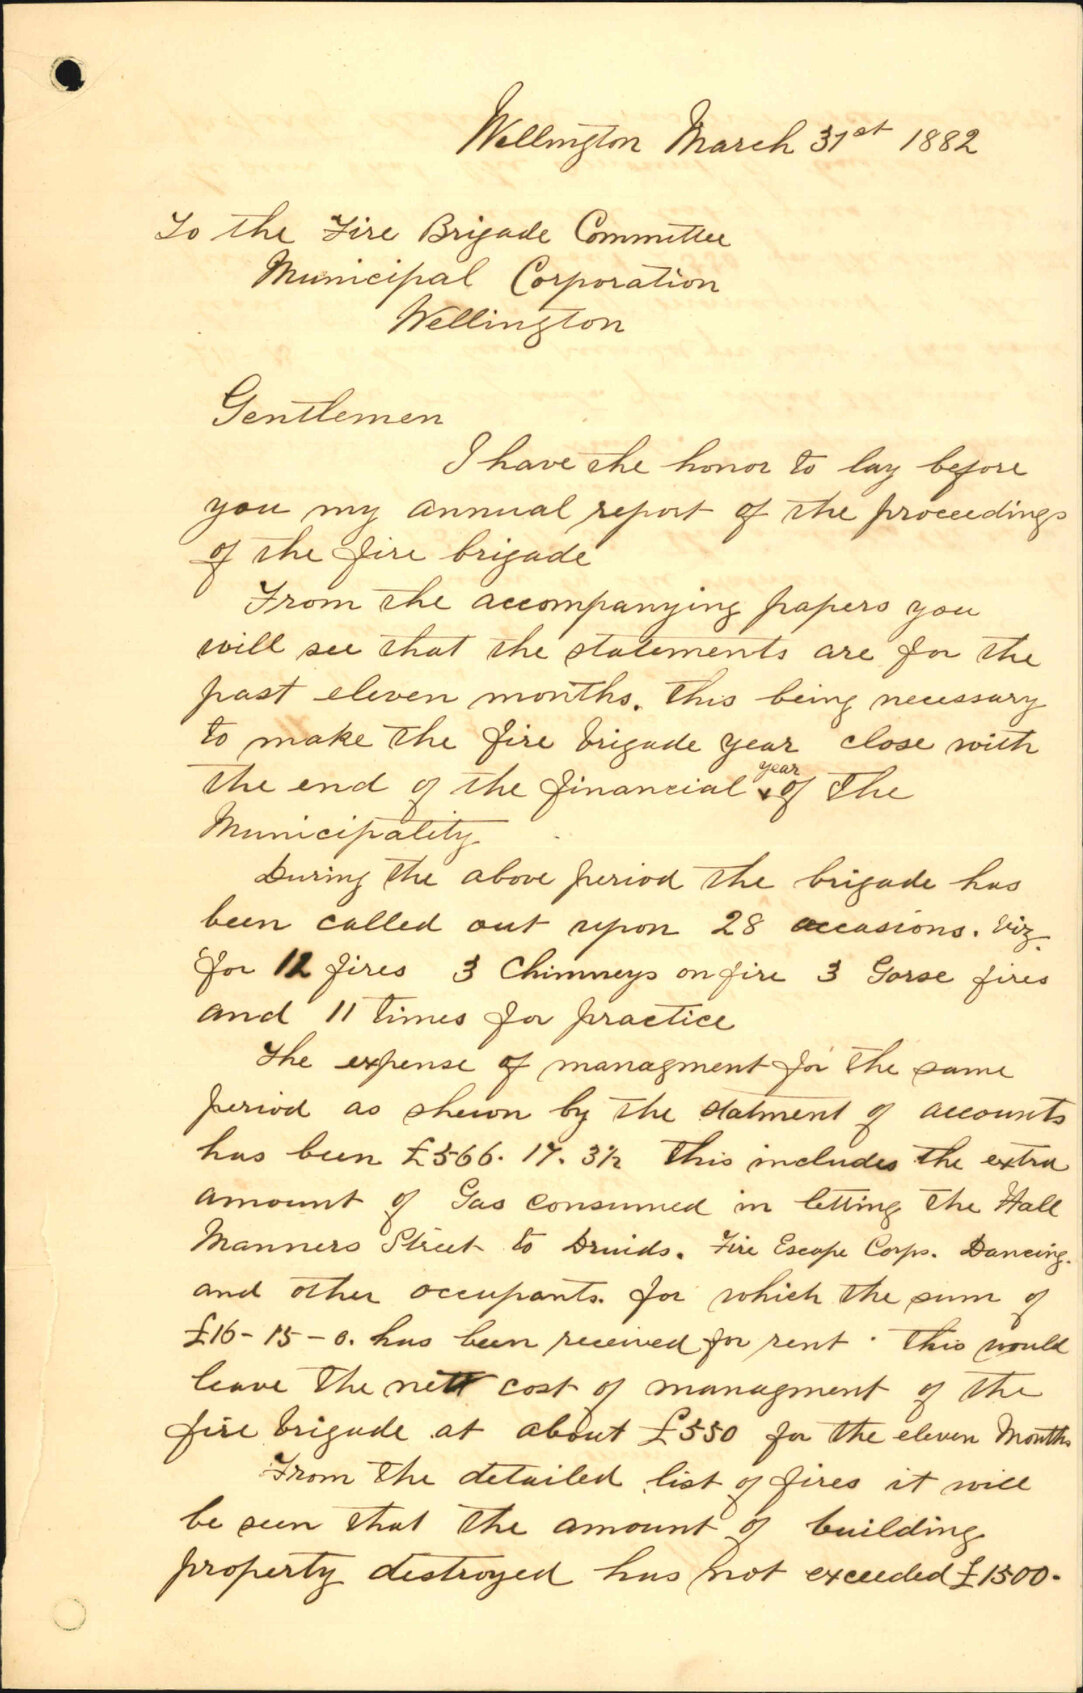 Wellington March 31st 1882
To the Fire Brigade Committee
Municipal Corporation
Wellington
Gentlemen
I have the honor to lay before
you my annual report of the proceedings
of the fire brigade
From the accompanying papers you
will see that the statements are for the
past eleven months. this being necessary
to make the fire brigade year close with
the end of the financial year of the
Municipality
During the above period the brigade has
been called out upon 28 occasions. Viz.
for 12 fires 3 Chimneys on fire 3 Gorse fires
and 11 times for practice
The expense of managment for the same
period as shewn by the statment of accounts
has been £566. 17. 3½ this includes the extra
amount of Gas consumed in letting the Hall
Manners Street to Druids. Fire Escape Corps. Dancing.
and other occupants. for which the sum of
£16-15-0. has been received for rent. this would
leave the nett cost of managment of the
fire brigade at about £550 for the eleven Months
From the detailed list of fires it will
be seen that the amount of building
property destroyed has not exceeded £1500.